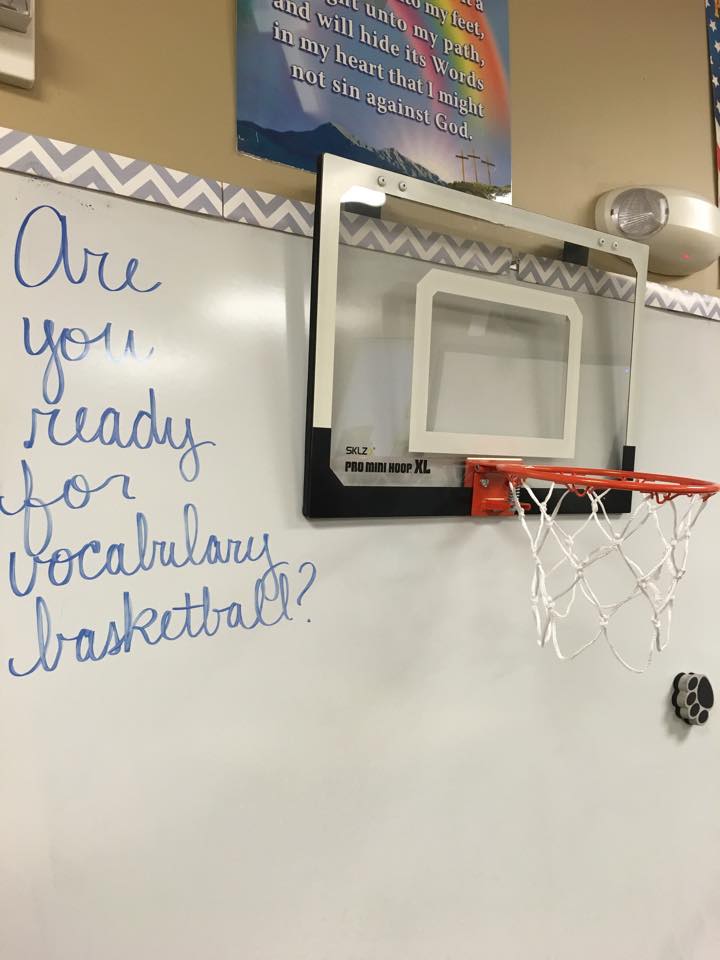 to my feet,
unto my path,
and will hide its Words
in my heart that I might
not sin against God.
Are
you
ready
for
vocabulary
basketball?
SKLZ
PRO MINI HOOP XL